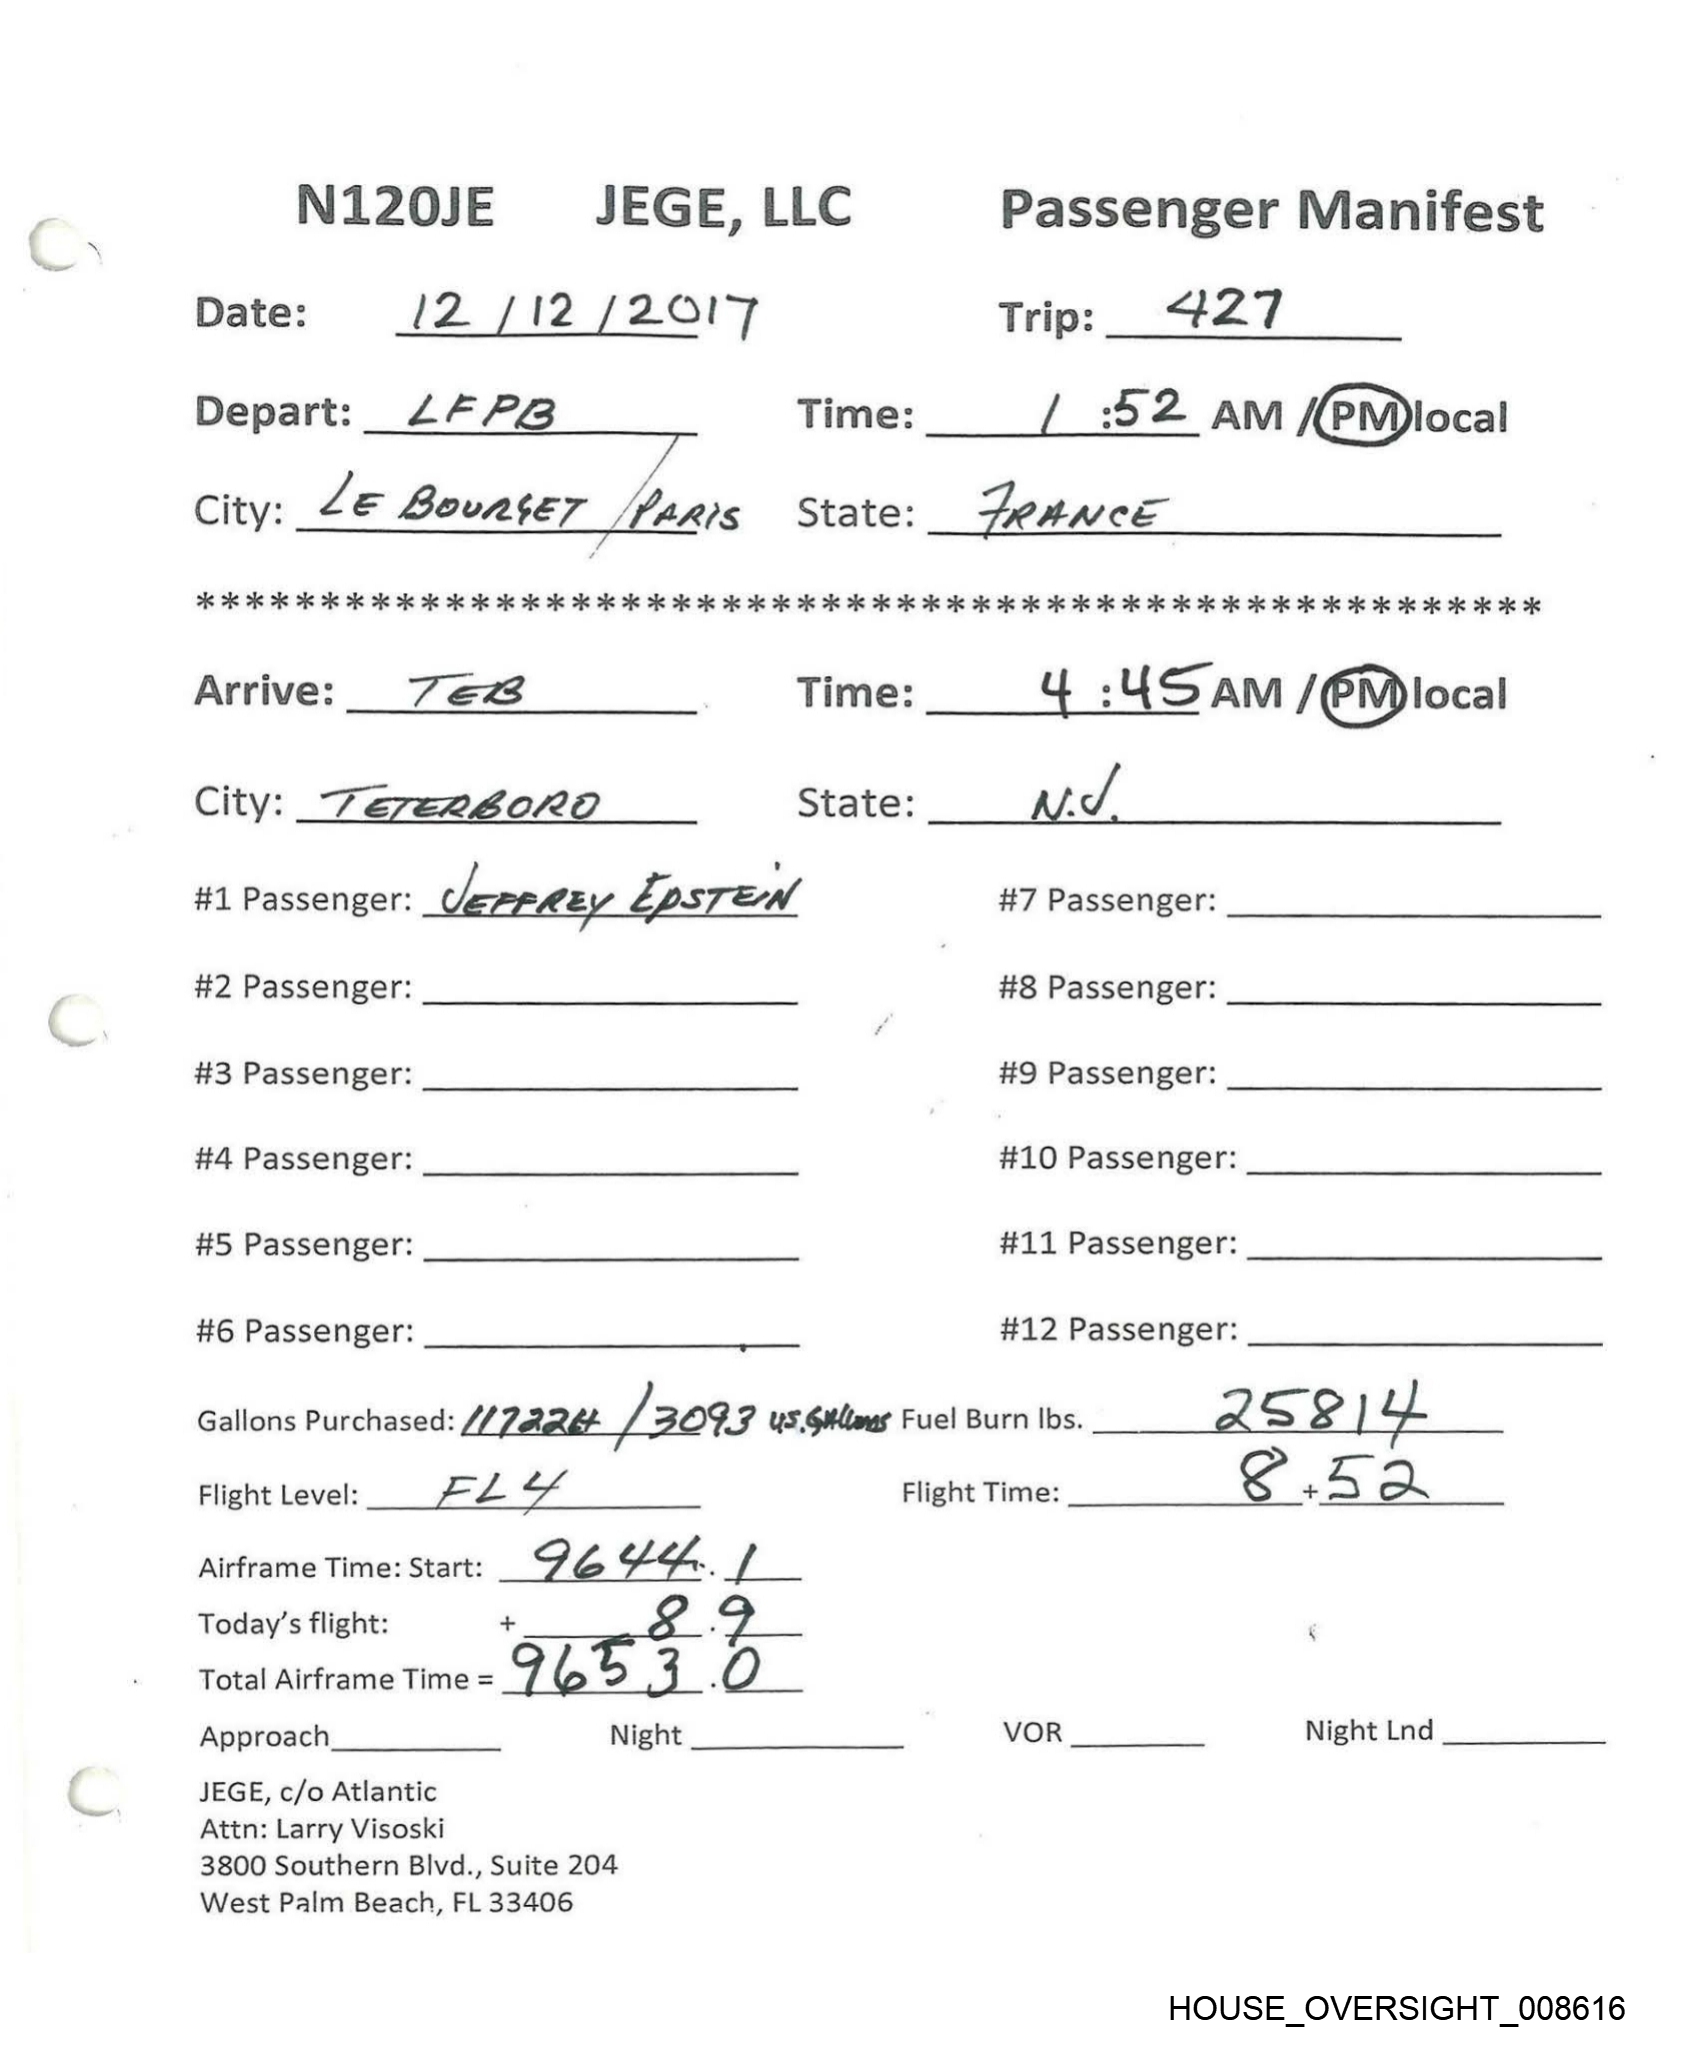 N120JE JEGE, LLC Passenger Manifest
Date: 12 / 12 / 2017 Trip: 427
Depart: LFPB Time: 1 :52 AM / PM local
City: LE BOURGET / PARIS State: FRANCE
******************************************************
Arrive: TEB Time: 4 :45 AM / PM local
City: TETERBORO State: N.J.
#1 Passenger: JEFFREY EPSTEIN #7 Passenger:
#2 Passenger: #8 Passenger:
#3 Passenger: #9 Passenger:
#4 Passenger: #10 Passenger:
#5 Passenger: #11 Passenger:
#6 Passenger: #12 Passenger:
Gallons Purchased: / 3093 US. Gallons Fuel Burn lbs. 25814
Flight Level: FL4 Flight Time: 8 + 52
Airframe Time: Start: 9644.1
Today's flight: + 8.9
Total Airframe Time = 9653.0
Approach Night VOR Night Lnd
JEGE, c/o Atlantic
Attn: Larry Visoski
3800 Southern Blvd., Suite 204
West Palm Beach, FL 33406
HOUSE_OVERSIGHT_008616